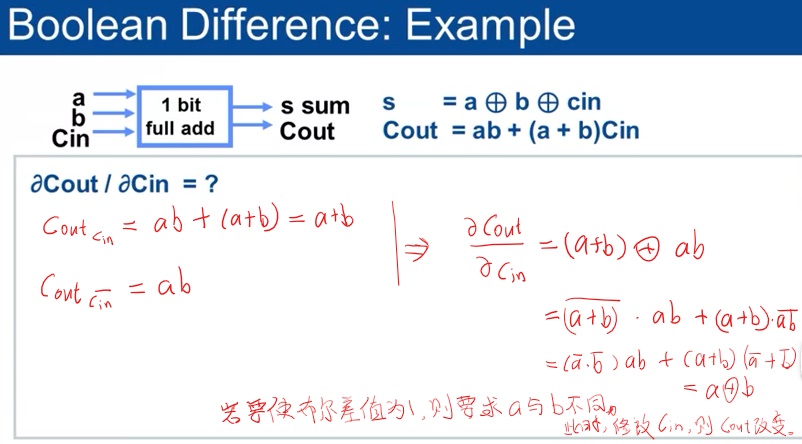 Boolean Difference: Example
a
b
Cin
1 bit
full add
s sum
Cout
s = a ⊕ b ⊕ cin
Cout = ab + (a + b)Cin
∂Cout / ∂Cin = ?
Cout_{Cin} = ab + (a+b) = a+b
Cout_{\overline{Cin}} = ab
⇒ ∂Cout / ∂Cin = (a+b) ⊕ ab
= \overline{(a+b)} · ab + (a+b)·\overline{ab}
= (ā·b̄) ab + (a+b)(ā+b̄)
= a⊕b
若要使布尔差值为1,则要求a与b不同。
此时,修改Cin,则Cout改变。